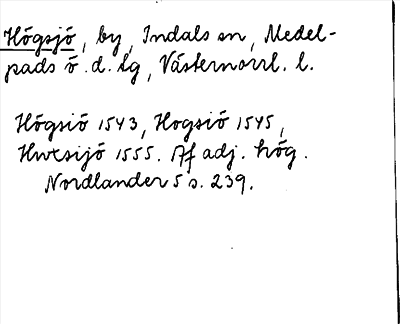 Högsjö, by, Indals sn, Medel-
pads ö. d. tg, Västernorrl. l.
Högsiö 1543, Hogsiö 1545,
1555. Af adj. hög.
Nordlander 5 s. 239.